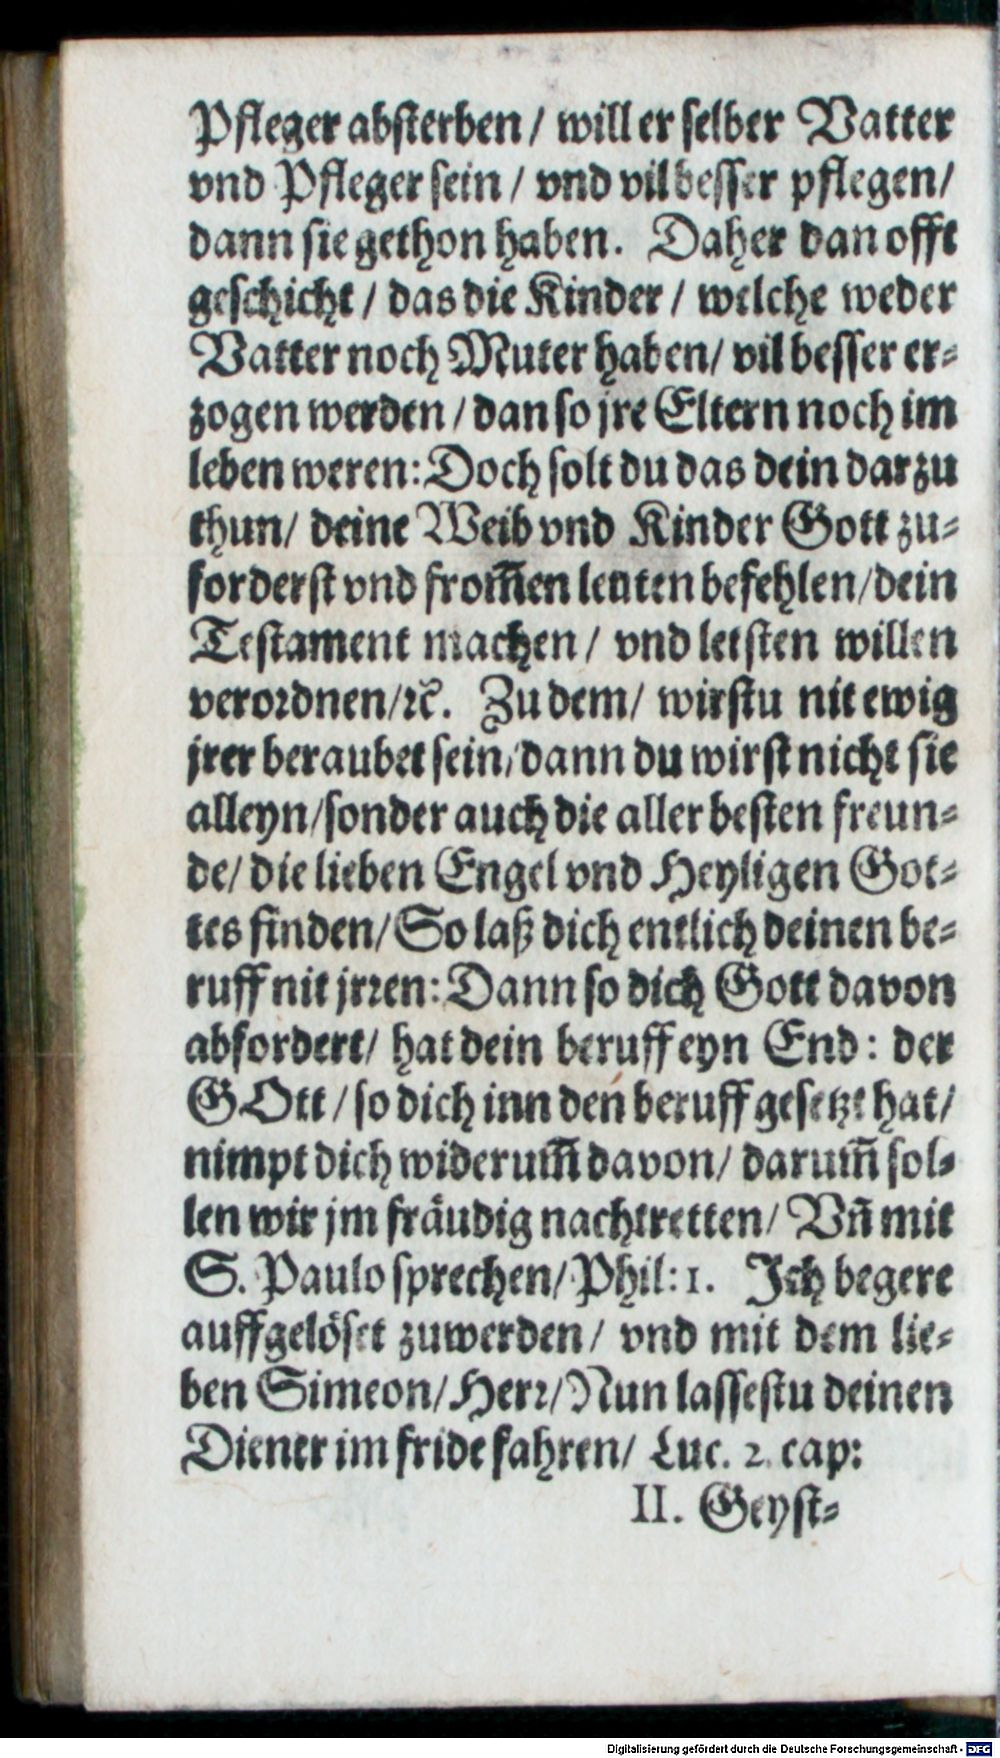 Pfleger absterben / will er selber Vatter
vnd Pfleger sein / vnd vil besser pflegen /
dann sie gethon haben. Daher dan offt
geschicht / das die Kinder / welche weder
Vatter noch Muter haben / vil besser er⸗
zogen werden / dan so jre Eltern noch im
leben weren: Doch solt du das dein darzu
thun / deine Weib vnd Kinder Gott zu⸗
forderst vnd from̃en leuten befehlen / dein
Testament machen / vnd letsten willen
verordnen / ꝛc̃. Zu dem / wirstu nit ewig
jrer beraubet sein / dann du wirst nicht sie
alleyn / sonder auch die aller besten freun⸗
de / die lieben Engel vnd Heyligen Got⸗
tes finden / So laß dich entlich deinen be⸗
ruff nit jrꝛen: Dann so dich Gott davon
abfordert / hat dein beruff eyn End: der
GOtt / so dich inn den beruff gesetzt hat /
nimpt dich widerum̃ davon / darum̃ sol⸗
len wir jm fräudig nachtretten / Vñ mit
S. Paulo sprechen / Phil: 1. Ich begere
auffgelöset zuwerden / vnd mit dem lie⸗
ben Simeon / Herꝛ / Nun lassestu deinen
Diener im fride fahren / Luc. 2. cap:
II. Geyst⸗
Digitalisierung gefördert durch die Deutsche Forschungsgemeinschaft - DFG